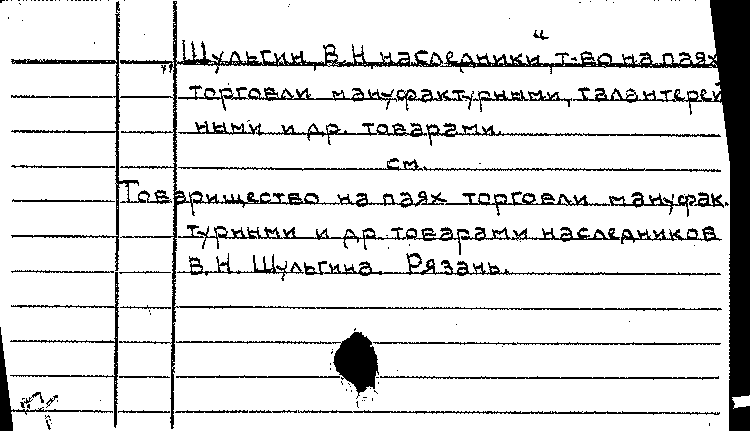 „Шульгин, В. Н. наследники“, т-во на паях
торговли мануфактурными, галантерей
ными и др. товарами.
см.
Товарищество на паях торговли мануфак.
турными и др. товарами наследников
В. Н. Шульгина. Рязань.